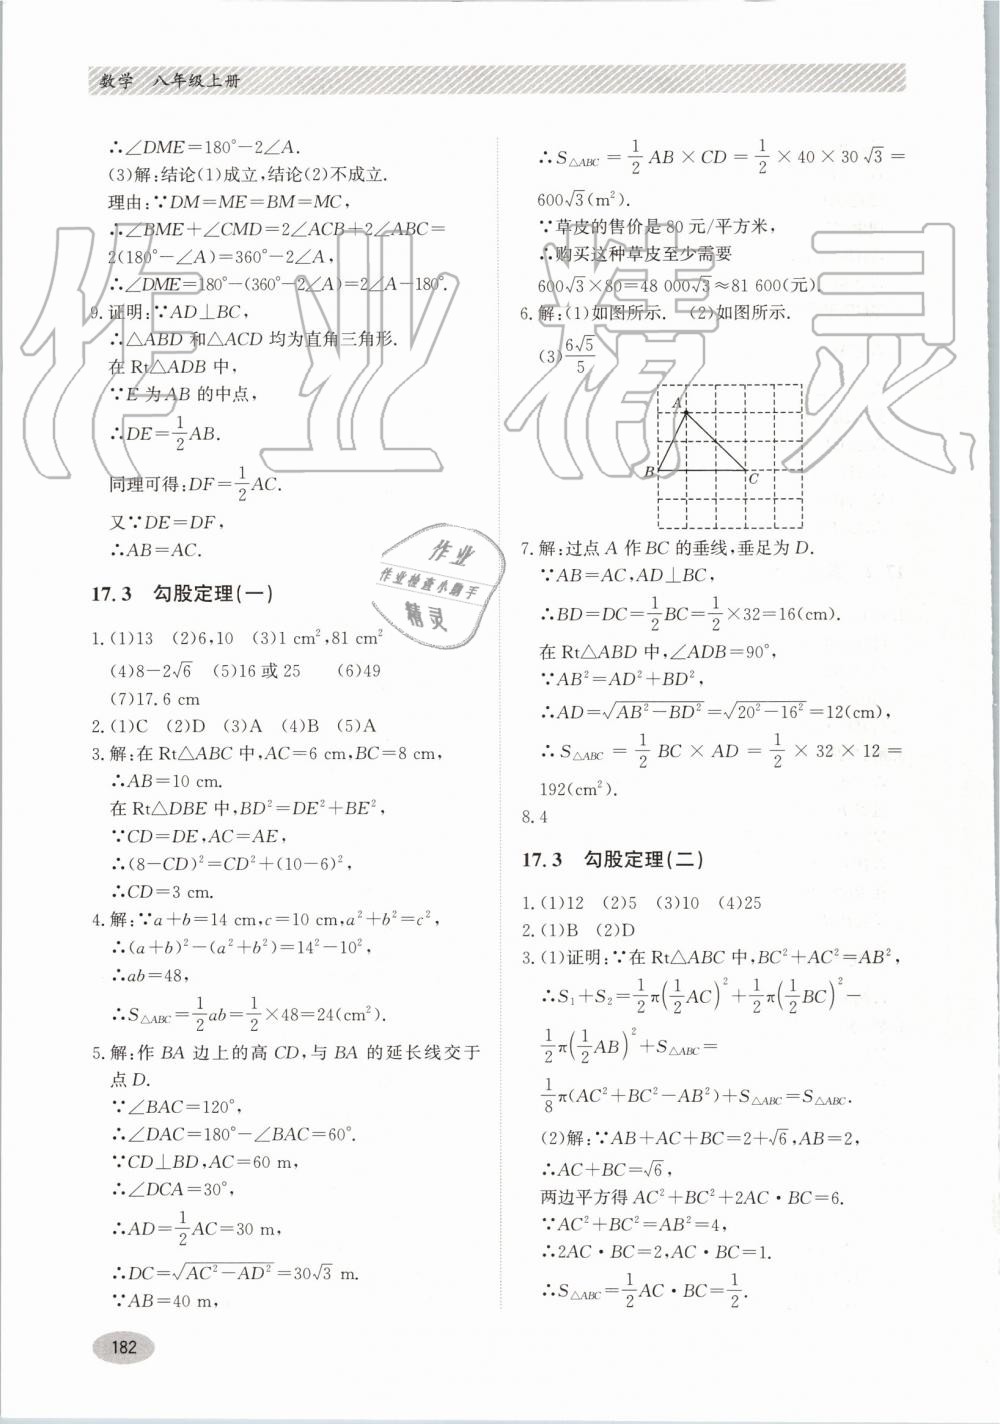 数学 八年级上册
∴∠DME=180°-2∠A.
(3)解:结论(1)成立,结论(2)不成立.
理由:∵DM=ME=BM=MC,
∴∠BME+∠CMD=2∠ACB+2∠ABC=
2(180°-∠A)=360°-2∠A,
∴∠DME=180°-(360°-2∠A)=2∠A-180°.
9.证明:∵AD⊥BC,
∴△ABD 和△ACD 均为直角三角形.
在 Rt△ADB 中,
∵E 为 AB 的中点,
∴DE=1/2AB.
同理可得:DF=1/2AC.
又∵DE=DF,
∴AB=AC.
17.3 勾股定理(一)
1.(1)13 (2)6,10 (3)1 cm²,81 cm²
(4)8-2√6 (5)16 或 25 (6)49
(7)17.6 cm
2.(1)C (2)D (3)A (4)B (5)A
3.解:在 Rt△ABC 中,AC=6 cm,BC=8 cm,
∴AB=10 cm.
在 Rt△DBE 中,BD²=DE²+BE²,
∵CD=DE,AC=AE,
∴(8-CD)²=CD²+(10-6)²,
∴CD=3 cm.
4.解:∵a+b=14 cm,c=10 cm,a²+b²=c²,
∴(a+b)²-(a²+b²)=14²-10²,
∴ab=48,
∴S△ABC=1/2ab=1/2×48=24(cm²).
5.解:作 BA 边上的高 CD,与 BA 的延长线交于
点 D.
∵∠BAC=120°,
∴∠DAC=180°-∠BAC=60°.
∵CD⊥BD,AC=60 m,
∴∠DCA=30°,
∴AD=1/2AC=30 m,
∴DC=√(AC²-AD²)=30√3 m.
∵AB=40 m,
182
∴S△ABC=1/2AB×CD=1/2×40×30√3=
600√3(m²).
∵草皮的售价是 80 元/平方米,
∴购买这种草皮至少需要
600√3×80=48 000√3≈81 600(元).
6.解:(1)如图所示. (2)如图所示.
(3)6√5/5
A
B
C
7.解:过点 A 作 BC 的垂线,垂足为 D.
∵AB=AC,AD⊥BC,
∴BD=DC=1/2BC=1/2×32=16(cm).
在 Rt△ABD 中,∠ADB=90°,
∵AB²=AD²+BD²,
∴AD=√(AB²-BD²)=√(20²-16²)=12(cm),
∴S△ABC=1/2BC×AD=1/2×32×12=
192(cm²).
8.4
17.3 勾股定理(二)
1.(1)12 (2)5 (3)10 (4)25
2.(1)B (2)D
3.(1)证明:∵在 Rt△ABC 中,BC²+AC²=AB²,
∴S₁+S₂=1/2π(1/2AC)²+1/2π(1/2BC)²-
1/2π(1/2AB)²+S△ABC=
1/8π(AC²+BC²-AB²)+S△ABC=S△ABC.
(2)解:∵AB+AC+BC=2+√6,AB=2,
∴AC+BC=√6,
两边平方得 AC²+BC²+2AC·BC=6.
∵AC²+BC²=AB²=4,
∴2AC·BC=2,AC·BC=1.
∴S△ABC=1/2AC·BC=1/2.
作业精灵
作业
作业检查小助手
精灵